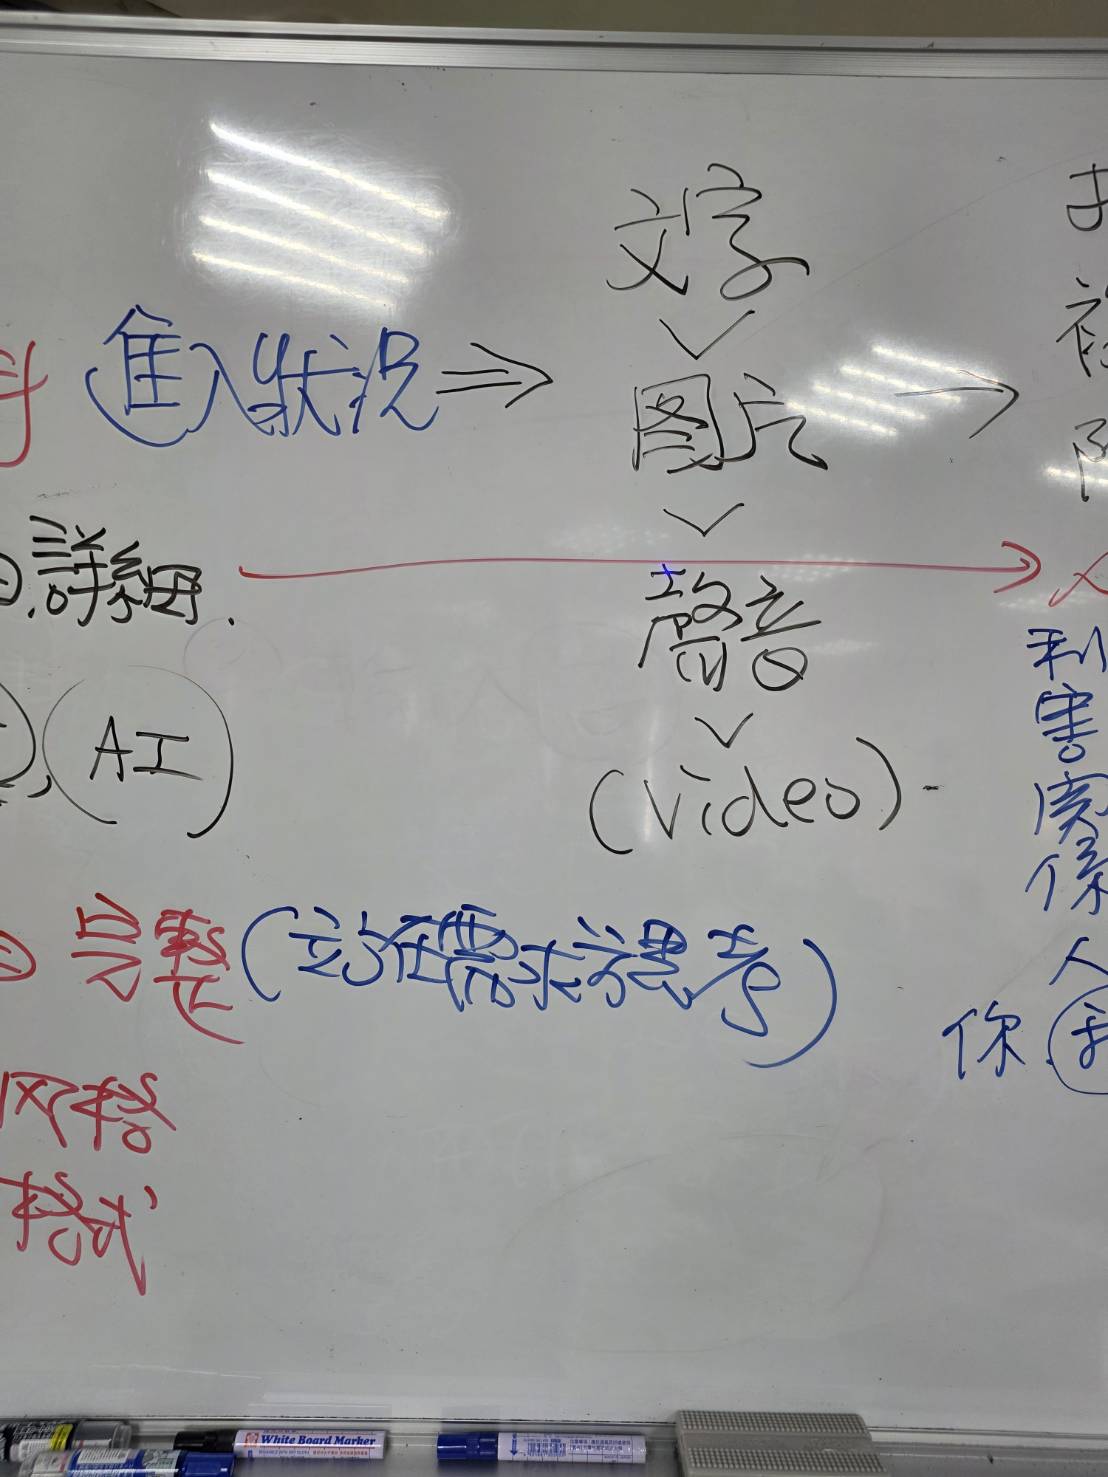 文字
進入狀況 ⇒
图片 →
詳細.
聲音
AI
(Video)
利
害
関
係
人
完整(站在需求方思考)
你
风格
格式
White Board Marker